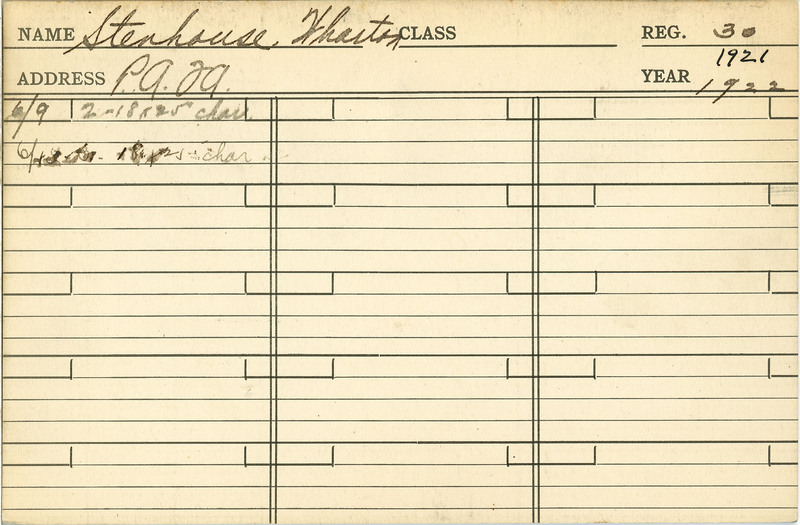 NAME Stenhouse, Wharton CLASS REG. 30
1921
ADDRESS P.A.FA. YEAR 1922
6/9 2-18x25 char.
6/13 18x25 char